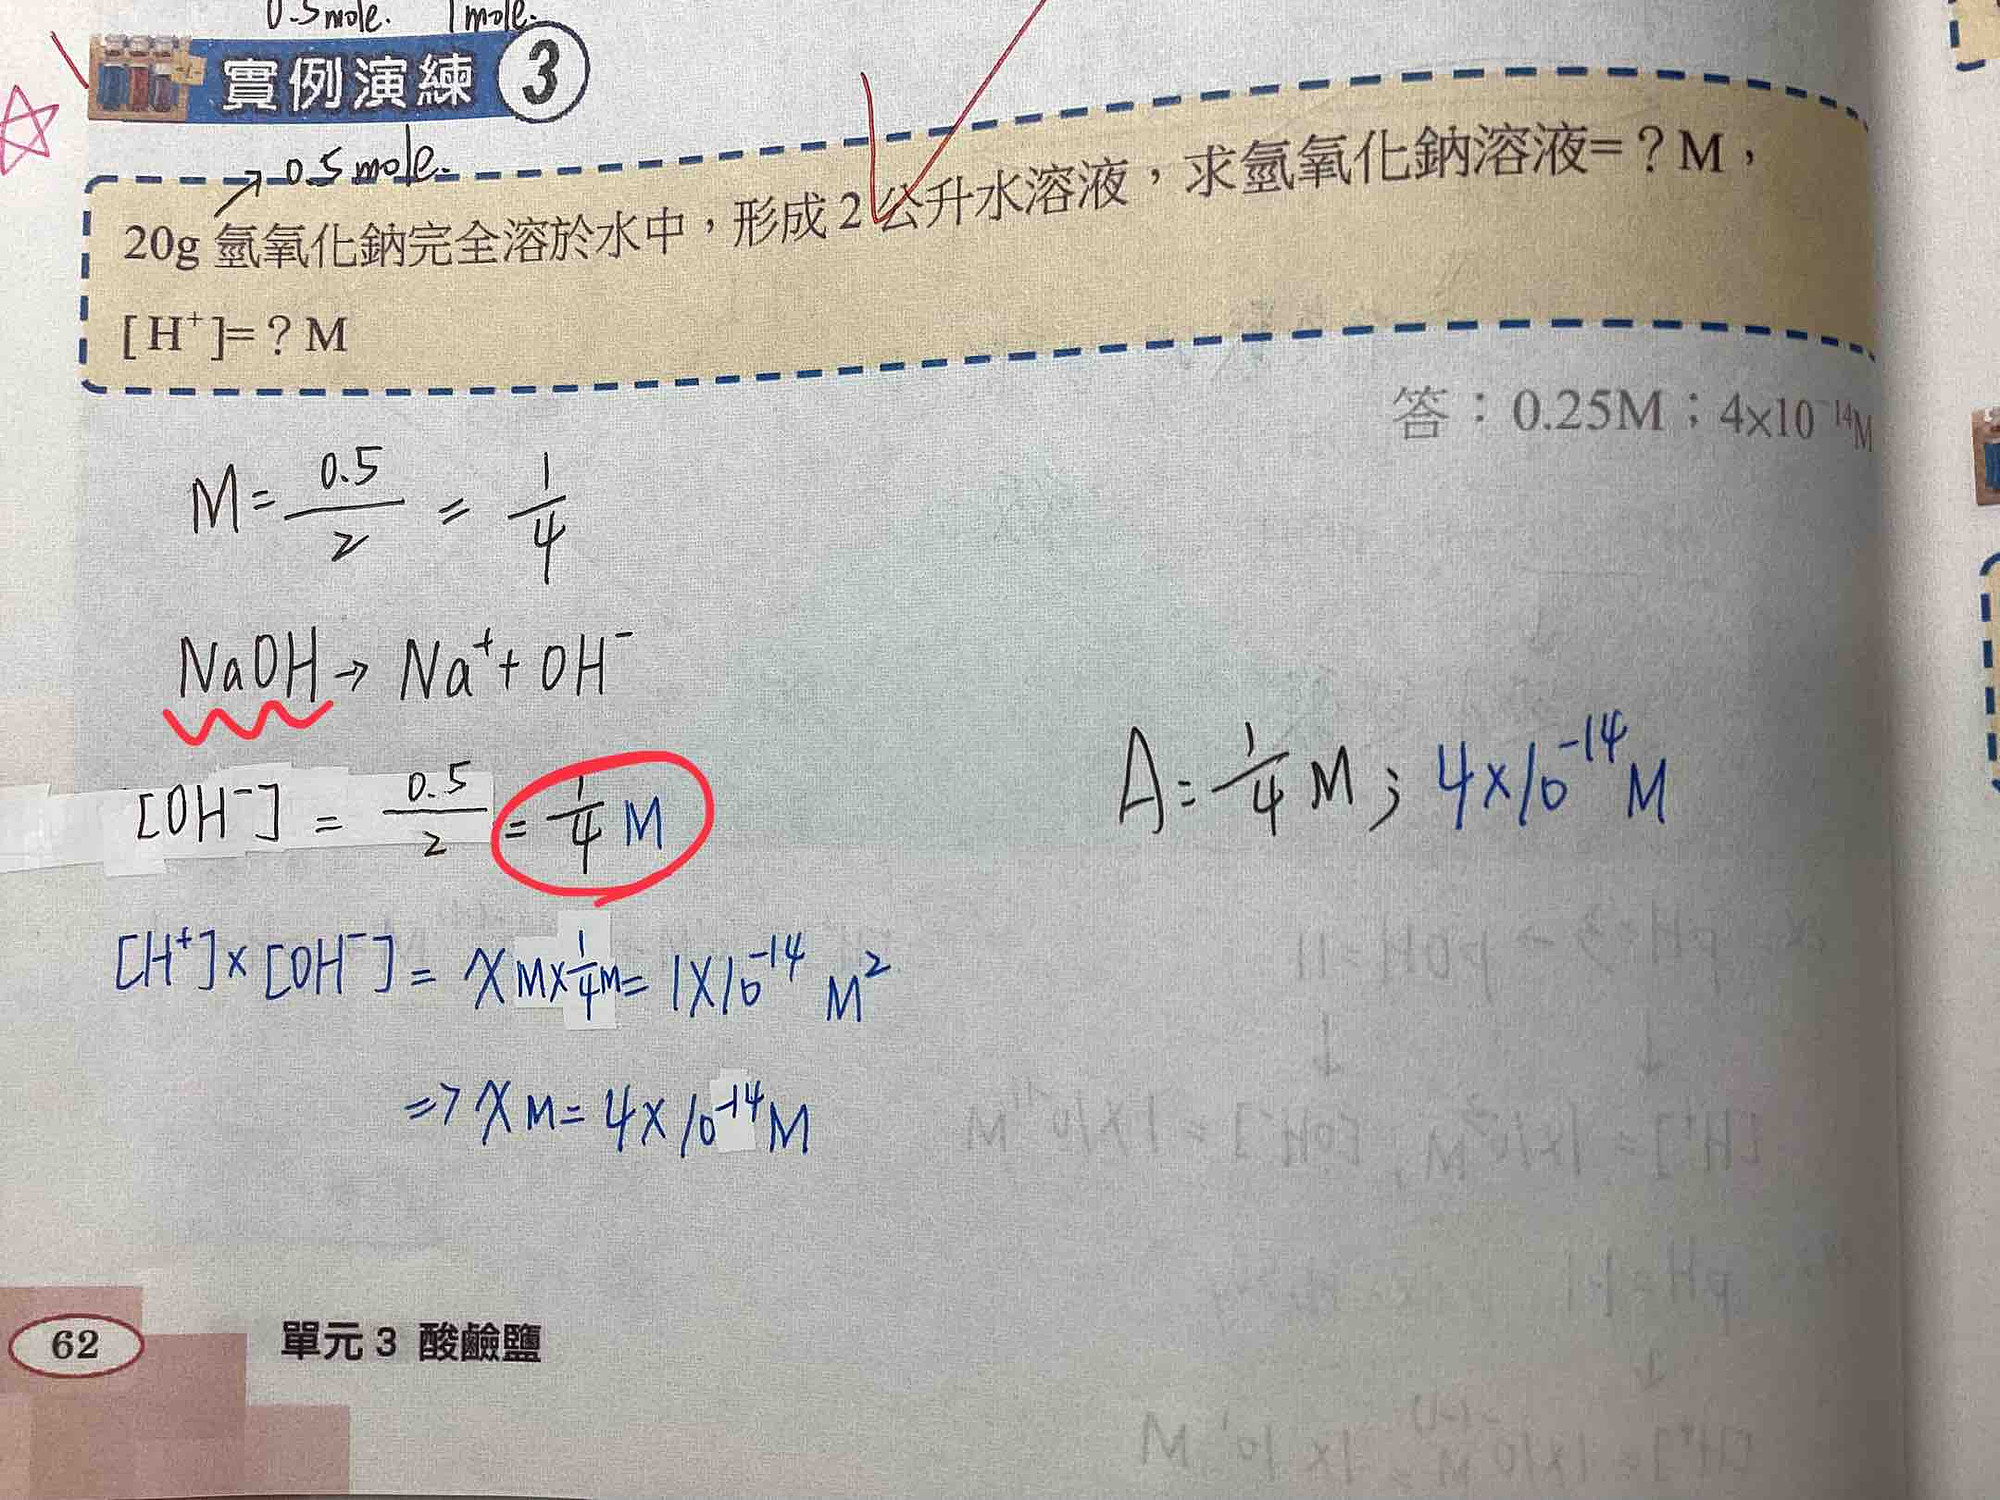 0.5mole. 1mole.
實例演練 3
0.5mole.
20g 氫氧化鈉完全溶於水中，形成2公升水溶液，求氫氧化鈉溶液=？M，
[H⁺]=？M
答：0.25M；4×10⁻¹⁴M
M = 0.5/2 = 1/4
NaOH → Na⁺ + OH⁻
[OH⁻] = 0.5/2 = 1/4 M
A = 1/4 M ; 4×10⁻¹⁴ M
[H⁺]×[OH⁻] = x M × 1/4 M = 1×10⁻¹⁴ M²
⇒ x M = 4×10⁻¹⁴ M
62 單元 3 酸鹼鹽